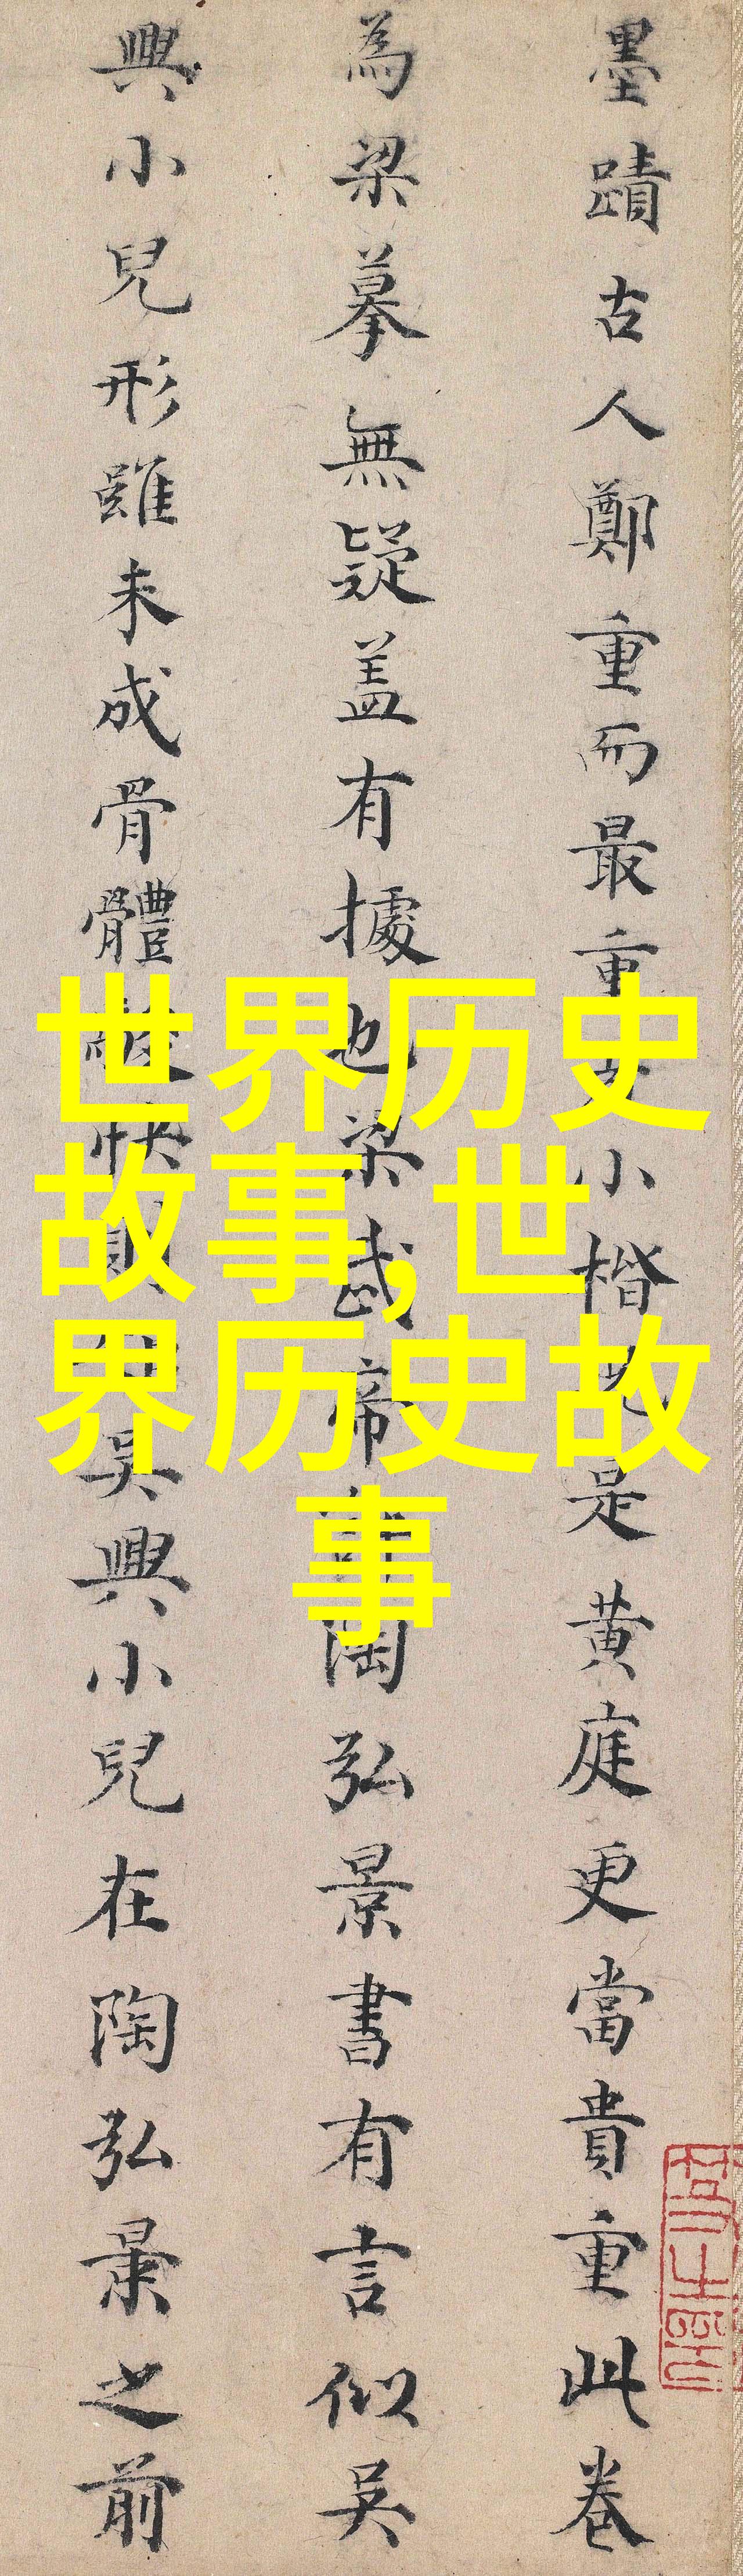 墨蹟古人鄭重而最重小楷是黄庭更當貴重此卷
為梁摹無疑蓋有據也梁武帝陶弘景書有言似吴
興小兒形雖未成骨體快吴興小兒在陶弘景之前
世界历史
故事,世
界历史故
事